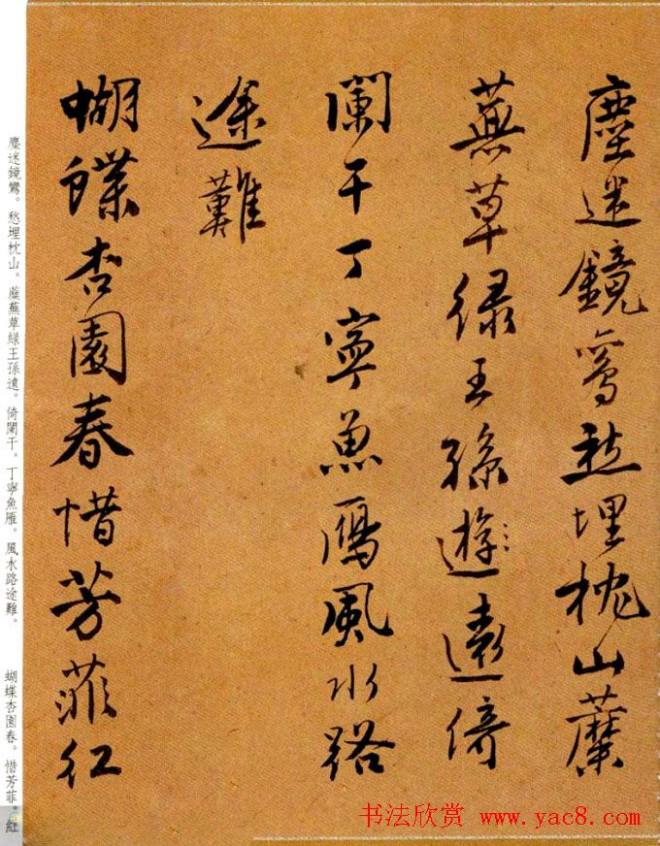 塵迷鏡鸞愁埋枕山蘼
蕪草緑王孫遊遠倚
闌干丁寧魚鴈風水路
途難
蝴蝶杏園春惜芳菲紅
塵迷鏡鸞。愁埋枕山。蘼蕪草綠王孫遠。倚闌干。丁寧魚雁。風水路途難。 蝴蝶杏園春。惜芳菲。紅
书法欣赏 www.yac8.com